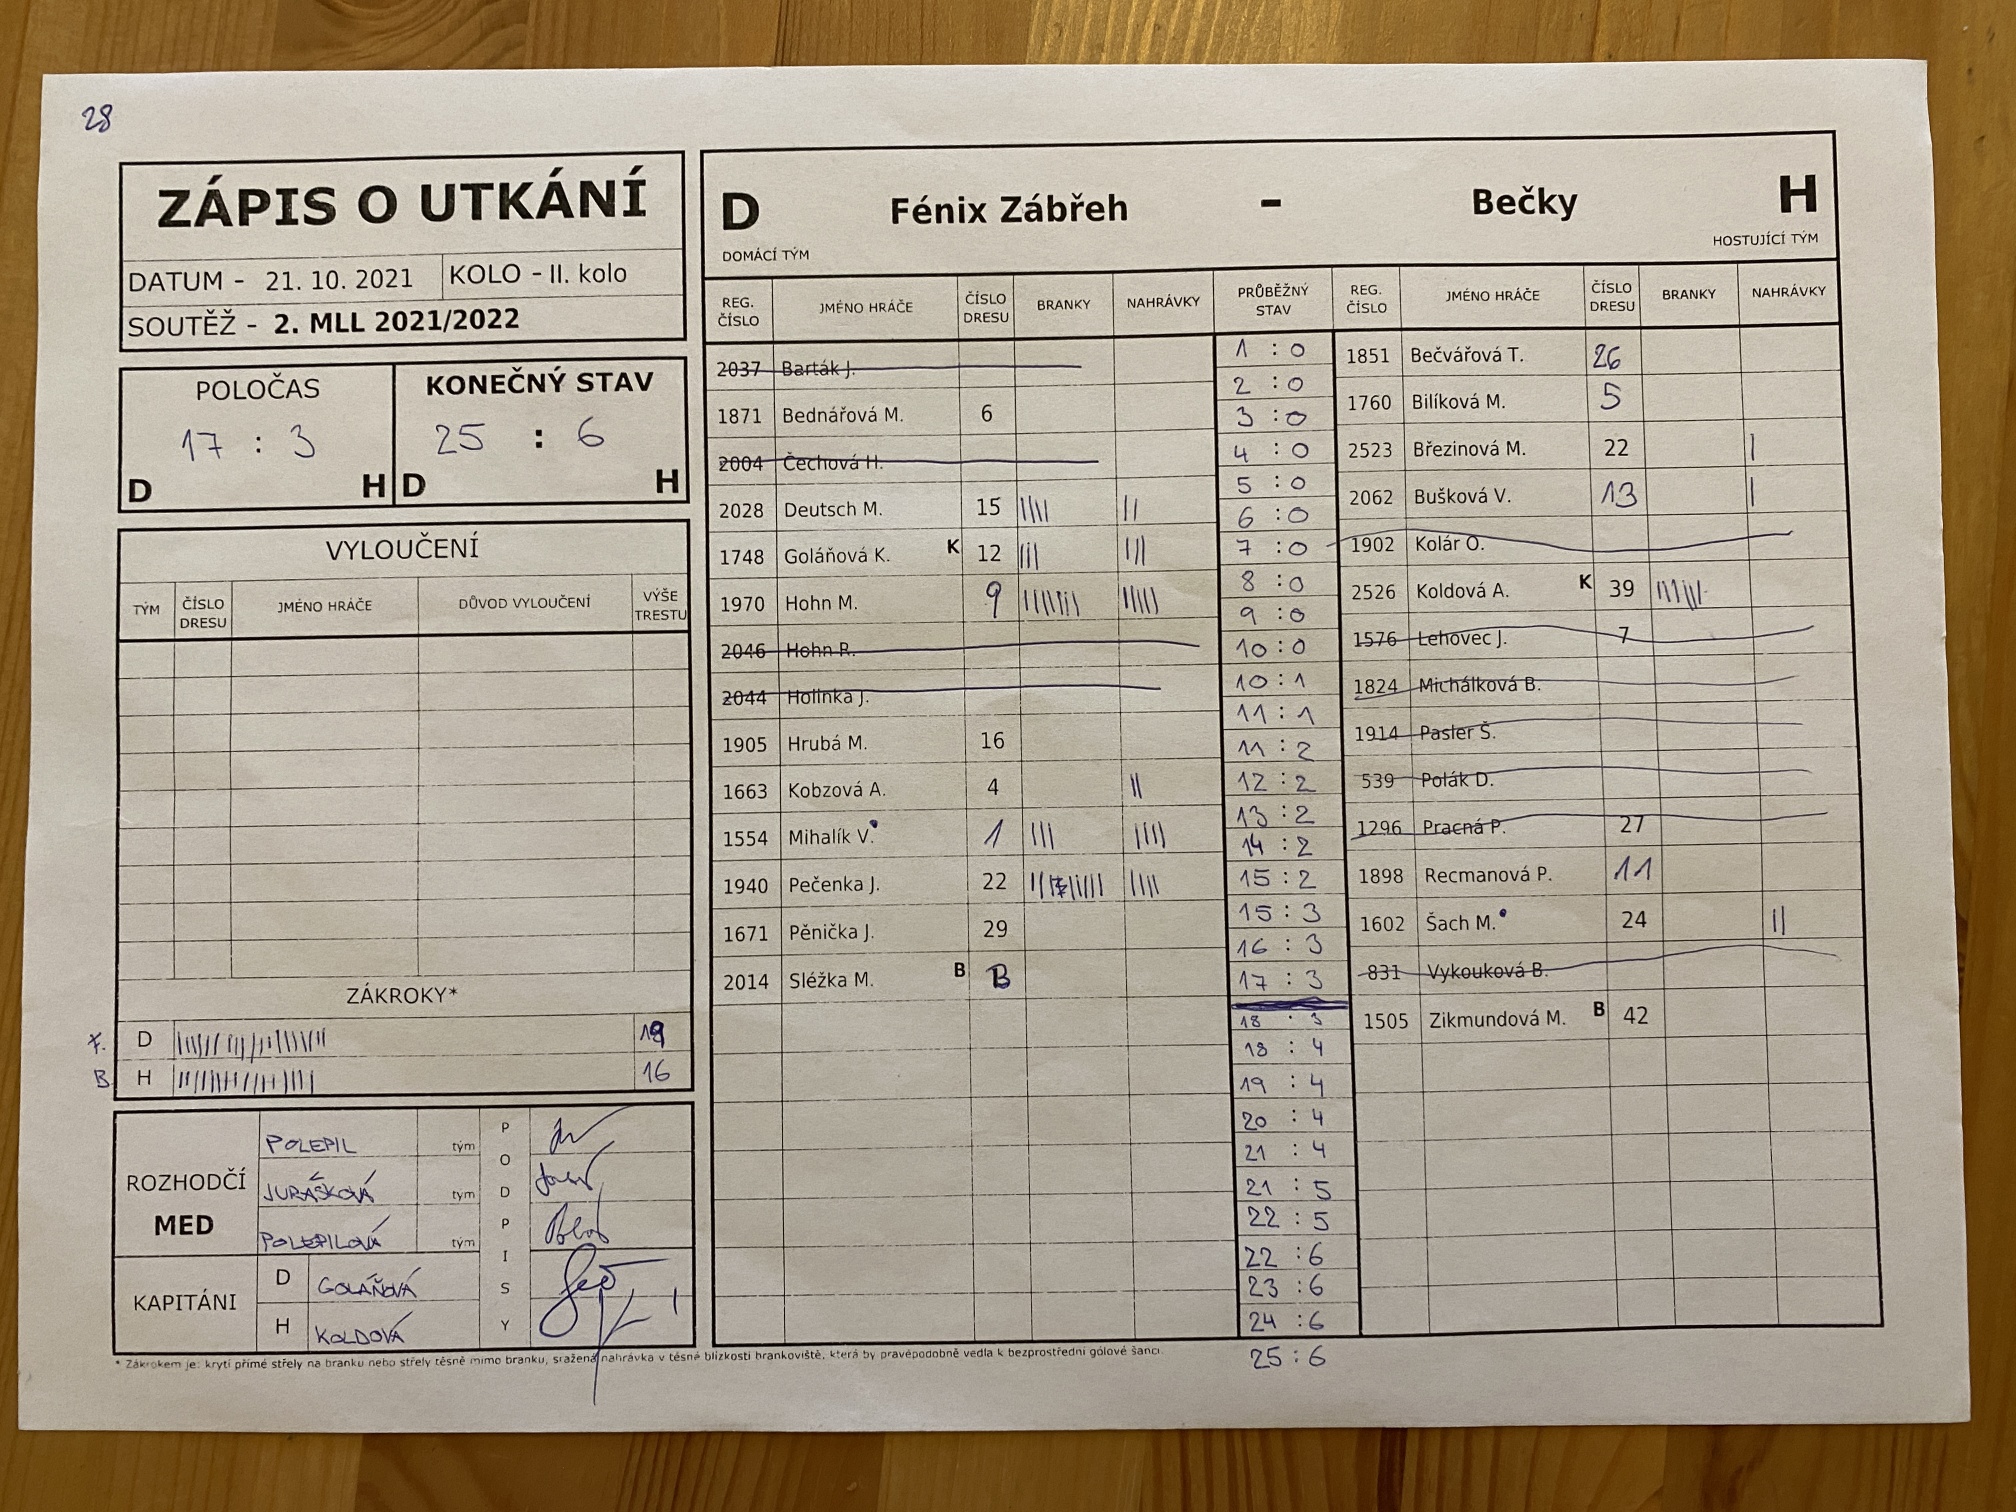 28
ZÁPIS O UTKÁNÍ
DATUM - 21. 10. 2021 KOLO - II. kolo
SOUTĚŽ - 2. MLL 2021/2022
POLOČAS KONEČNÝ STAV
17 : 3 25 : 6
D H D H
VYLOUČENÍ
TÝM ČÍSLO DRESU JMÉNO HRÁČE DŮVOD VYLOUČENÍ VÝŠE TRESTU
ZÁKROKY*
F. D 19
B H 16
ROZHODČÍ MED
POLEPIL tým
JURÁŠKOVÁ tým
POLEPILOVÁ tým
PODPISY
KAPITÁNI
D GOLÁŇOVÁ
H KOLDOVÁ
* Zákrokem je: krytí přímé střely na branku nebo střely těsně mimo branku, sražená nahrávka v těsné blízkosti brankoviště, která by pravěpodobně vedla k bezprostřední gólové šanci.
D Fénix Zábřeh - Bečky H
DOMÁCÍ TÝM HOSTUJÍCÍ TÝM
REG. ČÍSLO JMÉNO HRÁČE ČÍSLO DRESU BRANKY NAHRÁVKY
2037 Barták J.
1871 Bednářová M. 6
2004 Čechová H.
2028 Deutsch M. 15 |||| ||
1748 Goláňová K. K 12 ||| |||
1970 Hohn M. 9 ||||||| |||||
2046 Hohn R.
2044 Holinka J.
1905 Hrubá M. 16
1663 Kobzová A. 4 ||
1554 Mihalík V. 1 ||| ||||
1940 Pečenka J. 22 ||||
1671 Pěnička J. 29
2014 Sléžka M. B B
PRŮBĚŽNÝ STAV
1 : 0
2 : 0
3 : 0
4 : 0
5 : 0
6 : 0
7 : 0
8 : 0
9 : 0
10 : 0
10 : 1
11 : 1
11 : 2
12 : 2
13 : 2
14 : 2
15 : 2
15 : 3
16 : 3
17 : 3
18 : 3
18 : 4
19 : 4
20 : 4
21 : 4
21 : 5
22 : 5
22 : 6
23 : 6
24 : 6
25 : 6
REG. ČÍSLO JMÉNO HRÁČE ČÍSLO DRESU BRANKY NAHRÁVKY
1851 Bečvářová T. 26
1760 Bilíková M. 5
2523 Březinová M. 22 |
2062 Bušková V. 13 |
1902 Kolár O.
2526 Koldová A. K 39 ||||||
1576 Lehovec J. 7
1824 Michálková B.
1914 Pasler Š.
539 Polák D.
1296 Pracná P. 27
1898 Recmanová P. 11
1602 Šach M. 24 ||
831 Vykouková B.
1505 Zikmundová M. B 42